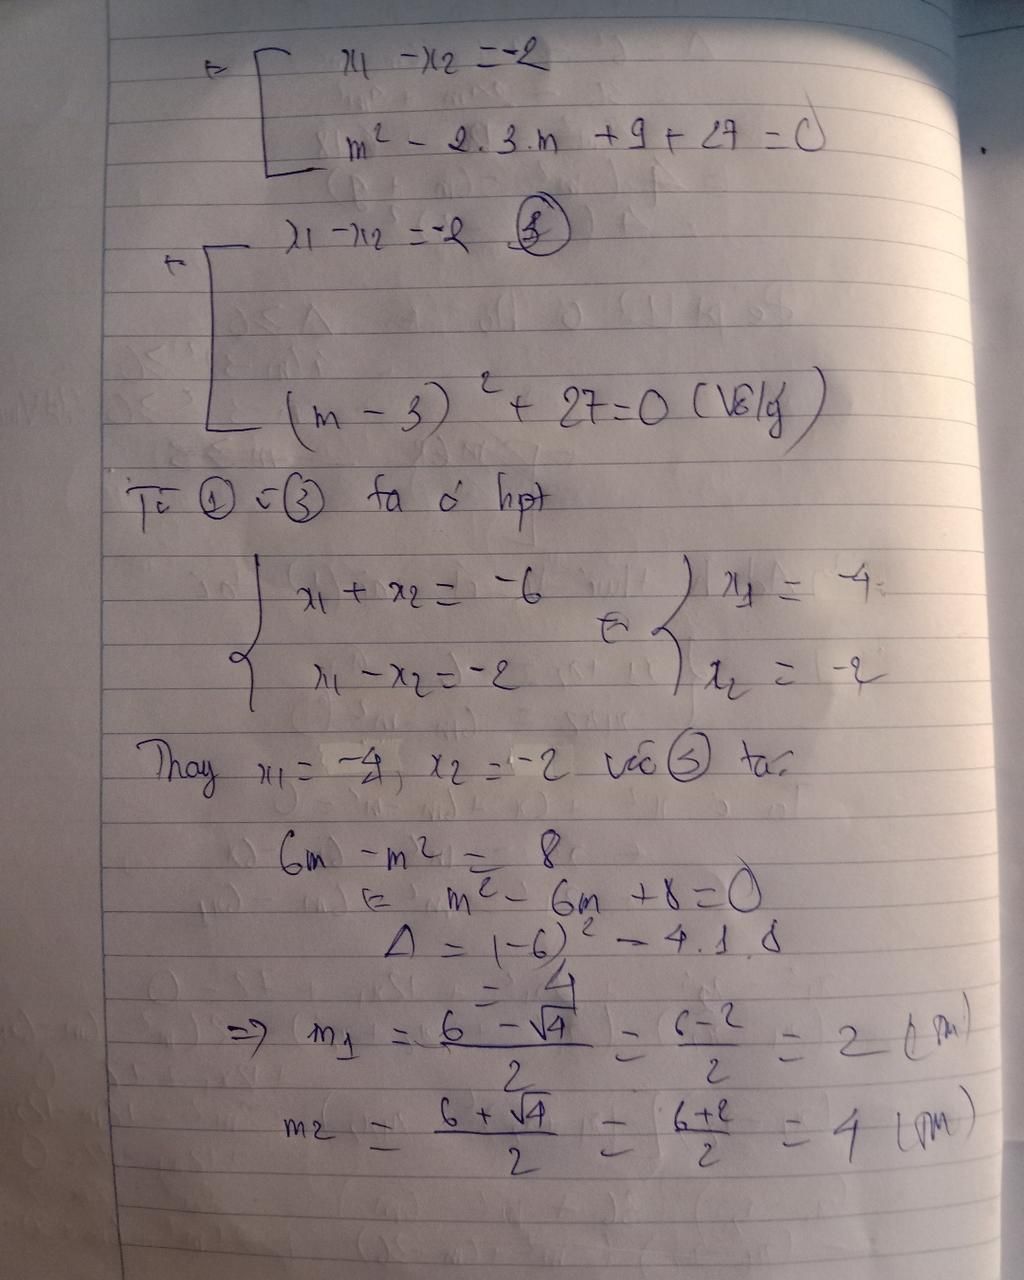 ⇔ [ x1 - x2 = -2
m² - 2.3.m + 9 + 27 = 0
⇔ [ x1 - x2 = -2 ③
(m - 3)² + 27 = 0 (
Từ ① ③ ta có hpt
{ x1 + x2 = -6 ⇔ { x1 = -4
x1 - x2 = -2 x2 = -2
Thay x1 = -4, x2 = -2 ta
6m - m² = 8
⇔ m² - 6m + 8 = 0
Δ = (-6)² - 4.1.8
= 4
=> m1 = (6 - √4)/2 = (6-2)/2 = 2 (tm)
m2 = (6 + √4)/2 = (6+2)/2 = 4 (tm)